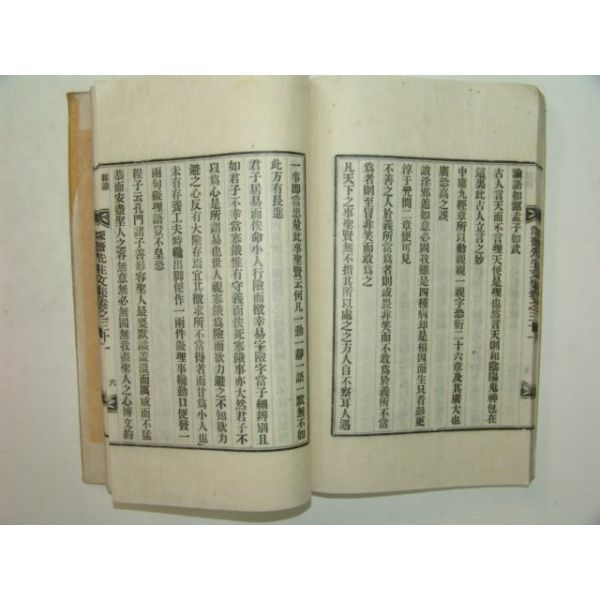 論語如韶孟子如武
古人言天而不言理天便是理也然言天則和陰陽鬼神包在
這裏此古人立言之妙
中庸九經章所以勸親親一親字恐衍二十六章及其廣大也
廣恐高之誤
詖淫邪遁如意必固我雖是四種病却是相因而生只看彭更
淳于咒問二章便可見
不善之人於義所當爲者則或畏非笑而不敢爲於義所不當
爲者則至冒非笑而敢爲之
凡天下之事聖賢無不指其所以處之之方人自不察耳人遇
一事即當思量此事聖賢云何凡一動一靜一語一默無不如
此方有長進
君子居易而俟命小人行險而徼幸易字險字當子細辨別且
如君子不幸當寒餓惟有守義而俟死寒餓事亦大然君子不
以爲心是所謂易也世人親寒餓爲險而欲力避之不知欲力
避之心反有大險存焉宜其徼求所不當得者而甘爲小人也
未有存養工夫時纔出脚便作一兩件礙理事纔動口便發一
兩句礙理語豈不皇恐
程子云孔門諸子善形容聖人最要默識蓋溫而厲威而不猛
恭而安盡聖人之容無意無必無固無我盡聖人之心博文約
雜識
深齋先生文集卷之三十一
六